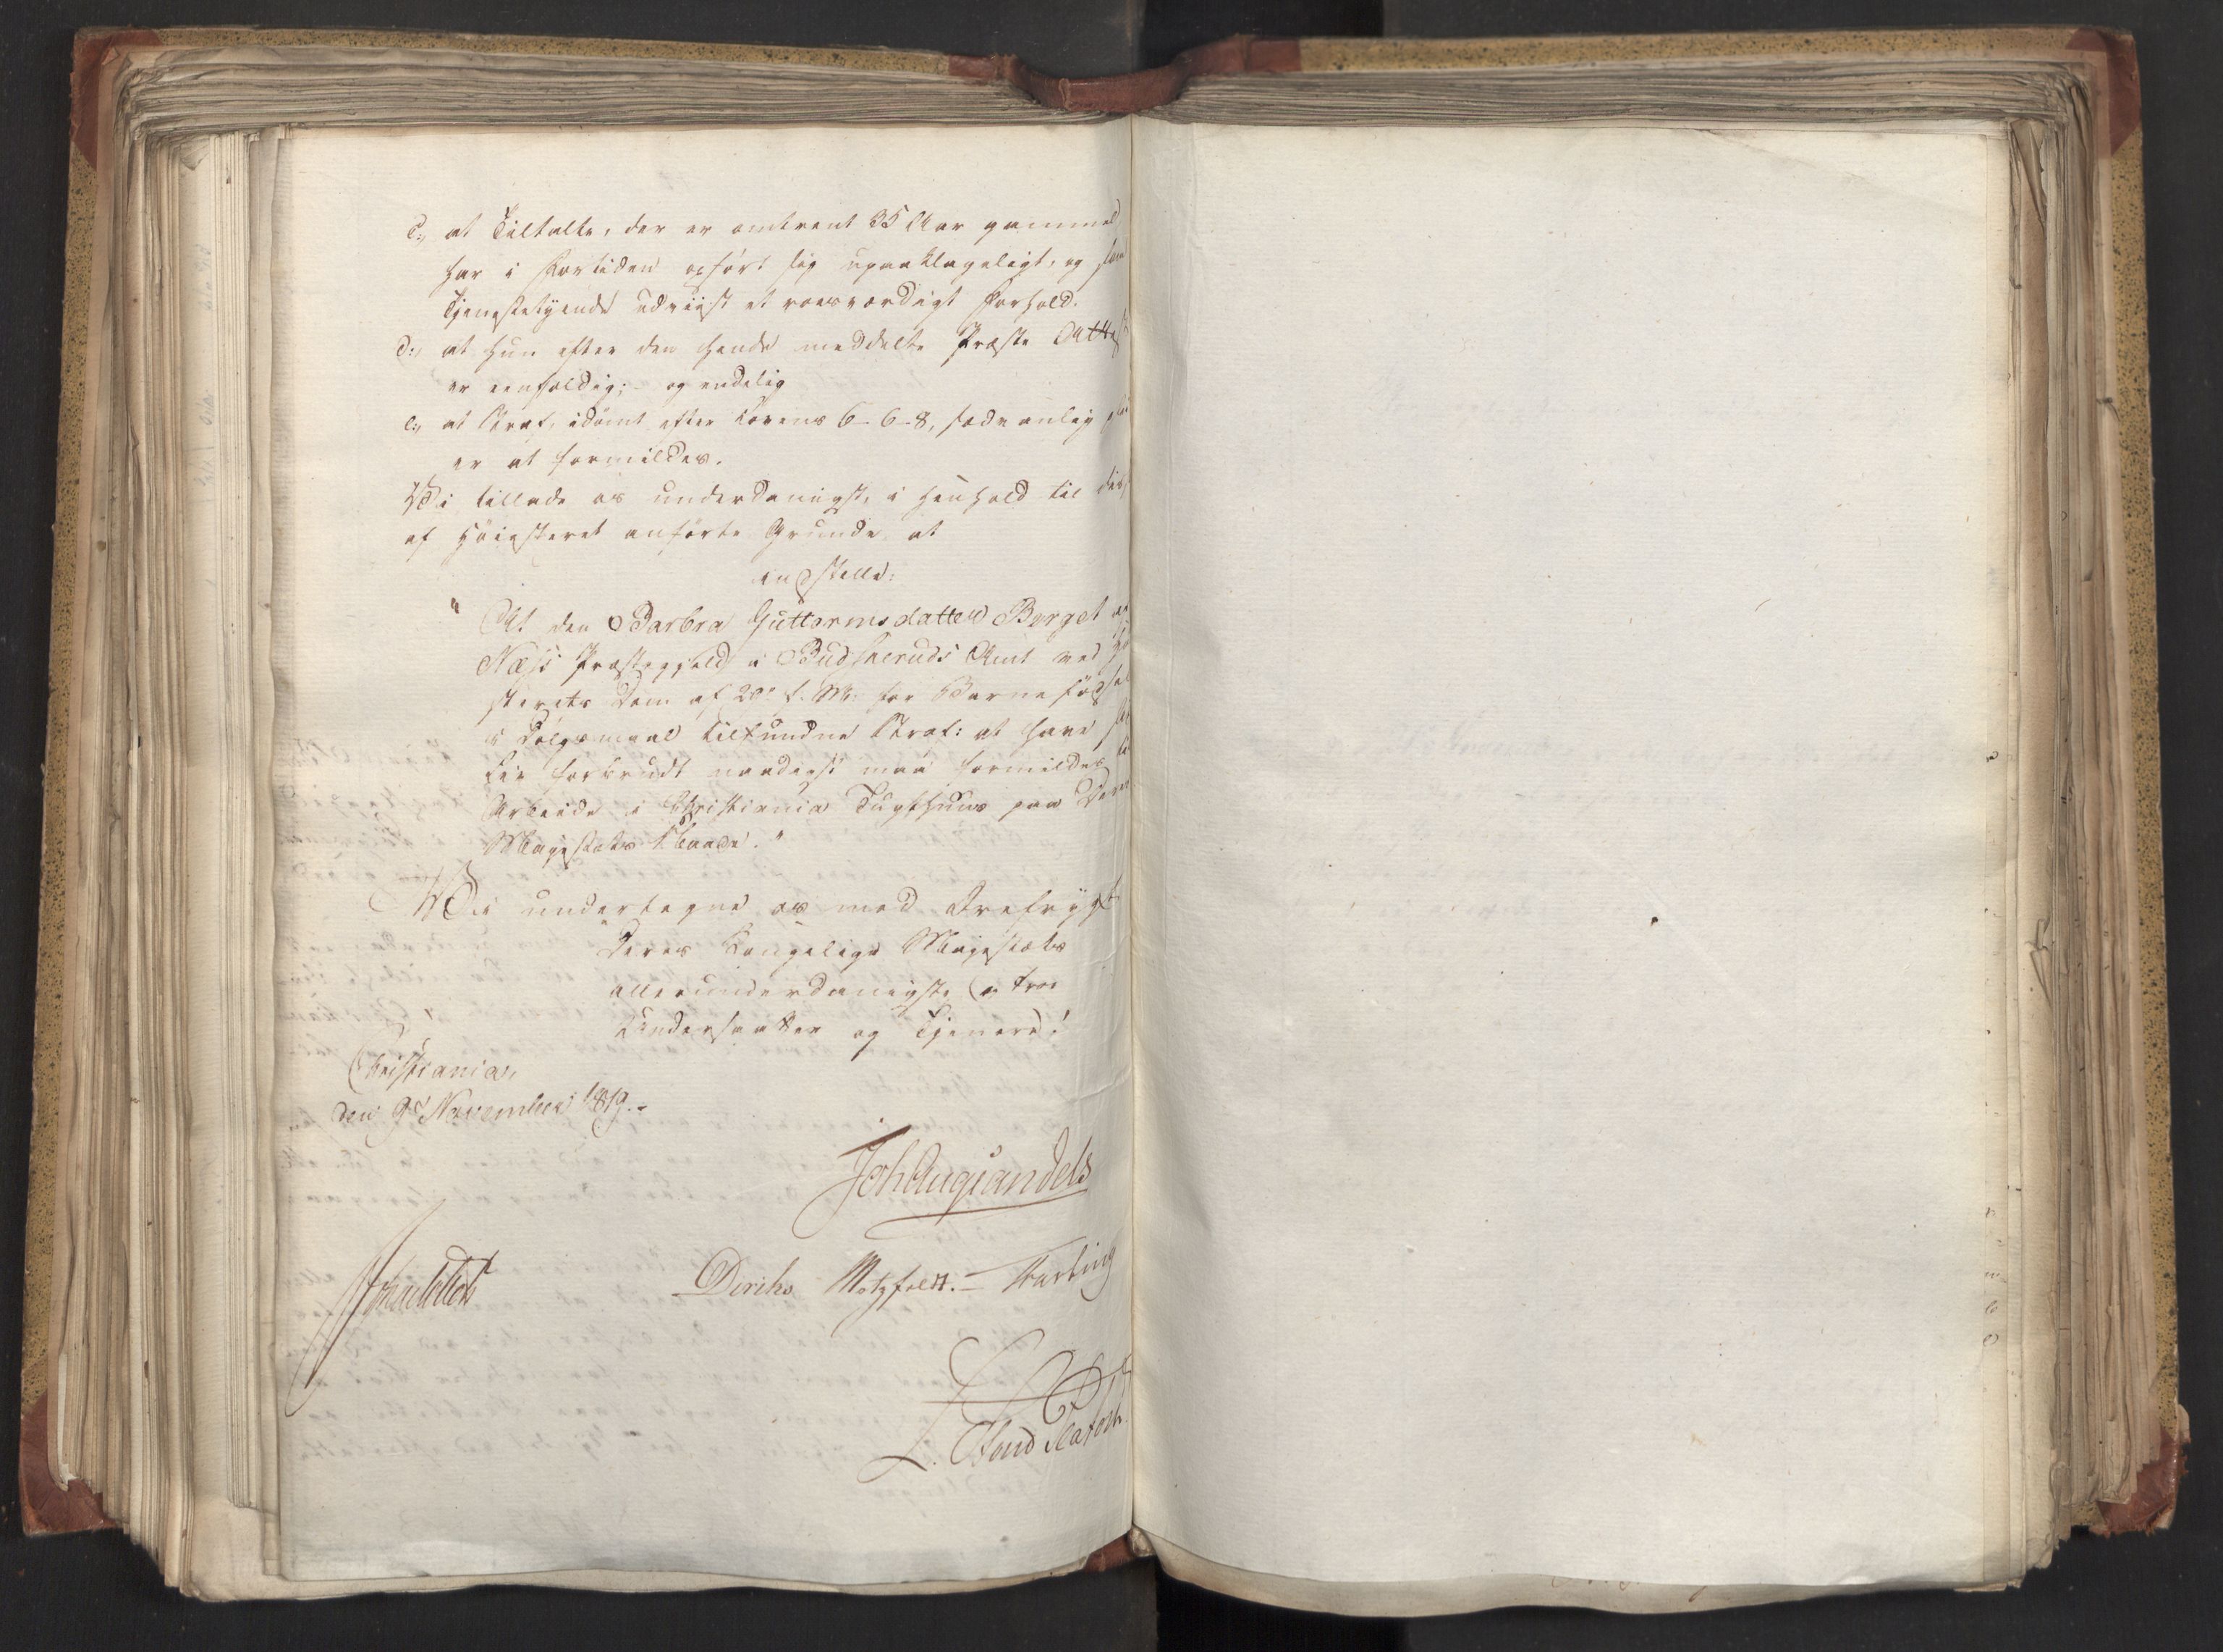 c., at Tiltalte, der er omtrent 35 Aar gammel
har i Fortiden opført sig upaaklageligt, og som
Tjenestetyende udviist et roesværdigt Forhold.
d:, at hun efter den hende meddelte Præste Attest
er eenfoldig; - og endelig
e., at Straf, idømt efter Lovens 6-6-8, sædvanlig
er at formildes.
Vi tillade os underdanigst, i Henhold til disse
af Høiesteret anførte Grunde, at
indstille:
"At den Barbra Guttormsdatter Berget af
Næss Præstegjeld i Budskeruds Amt ved Høie
sterets Dom af 20de f. M. for Barnefødsel
i Dølgsmaal tilfundne Straf: at have sit
Liv forbrudt naadigst maa formildes til
Arbeide i Christiania Tugthuus paa Deres
Majestæts Naade."
Vi undertegne os med Ærefrygt
Deres Kongelige Majestæts
allerunderdanigste og troe
Undersaatter og Tjenere!
Christiania,
den 9de November 1819.-
Joh Aug Sandels
Diriks Motzfeldt. - Fasting